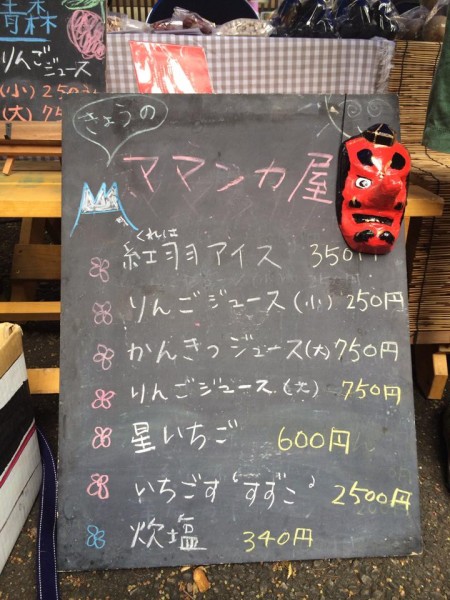 青森
りんご
ジュース
(小) 250
(大) 75
きょうの
ママンカ屋
くれは
紅羽アイス 350円
りんごジュース(小) 250円
かんきつジュース(大) 750円
りんごジュース(大) 750円
星いちご 600円
いちごす‘すずこ’ 2500円
炊塩 340円